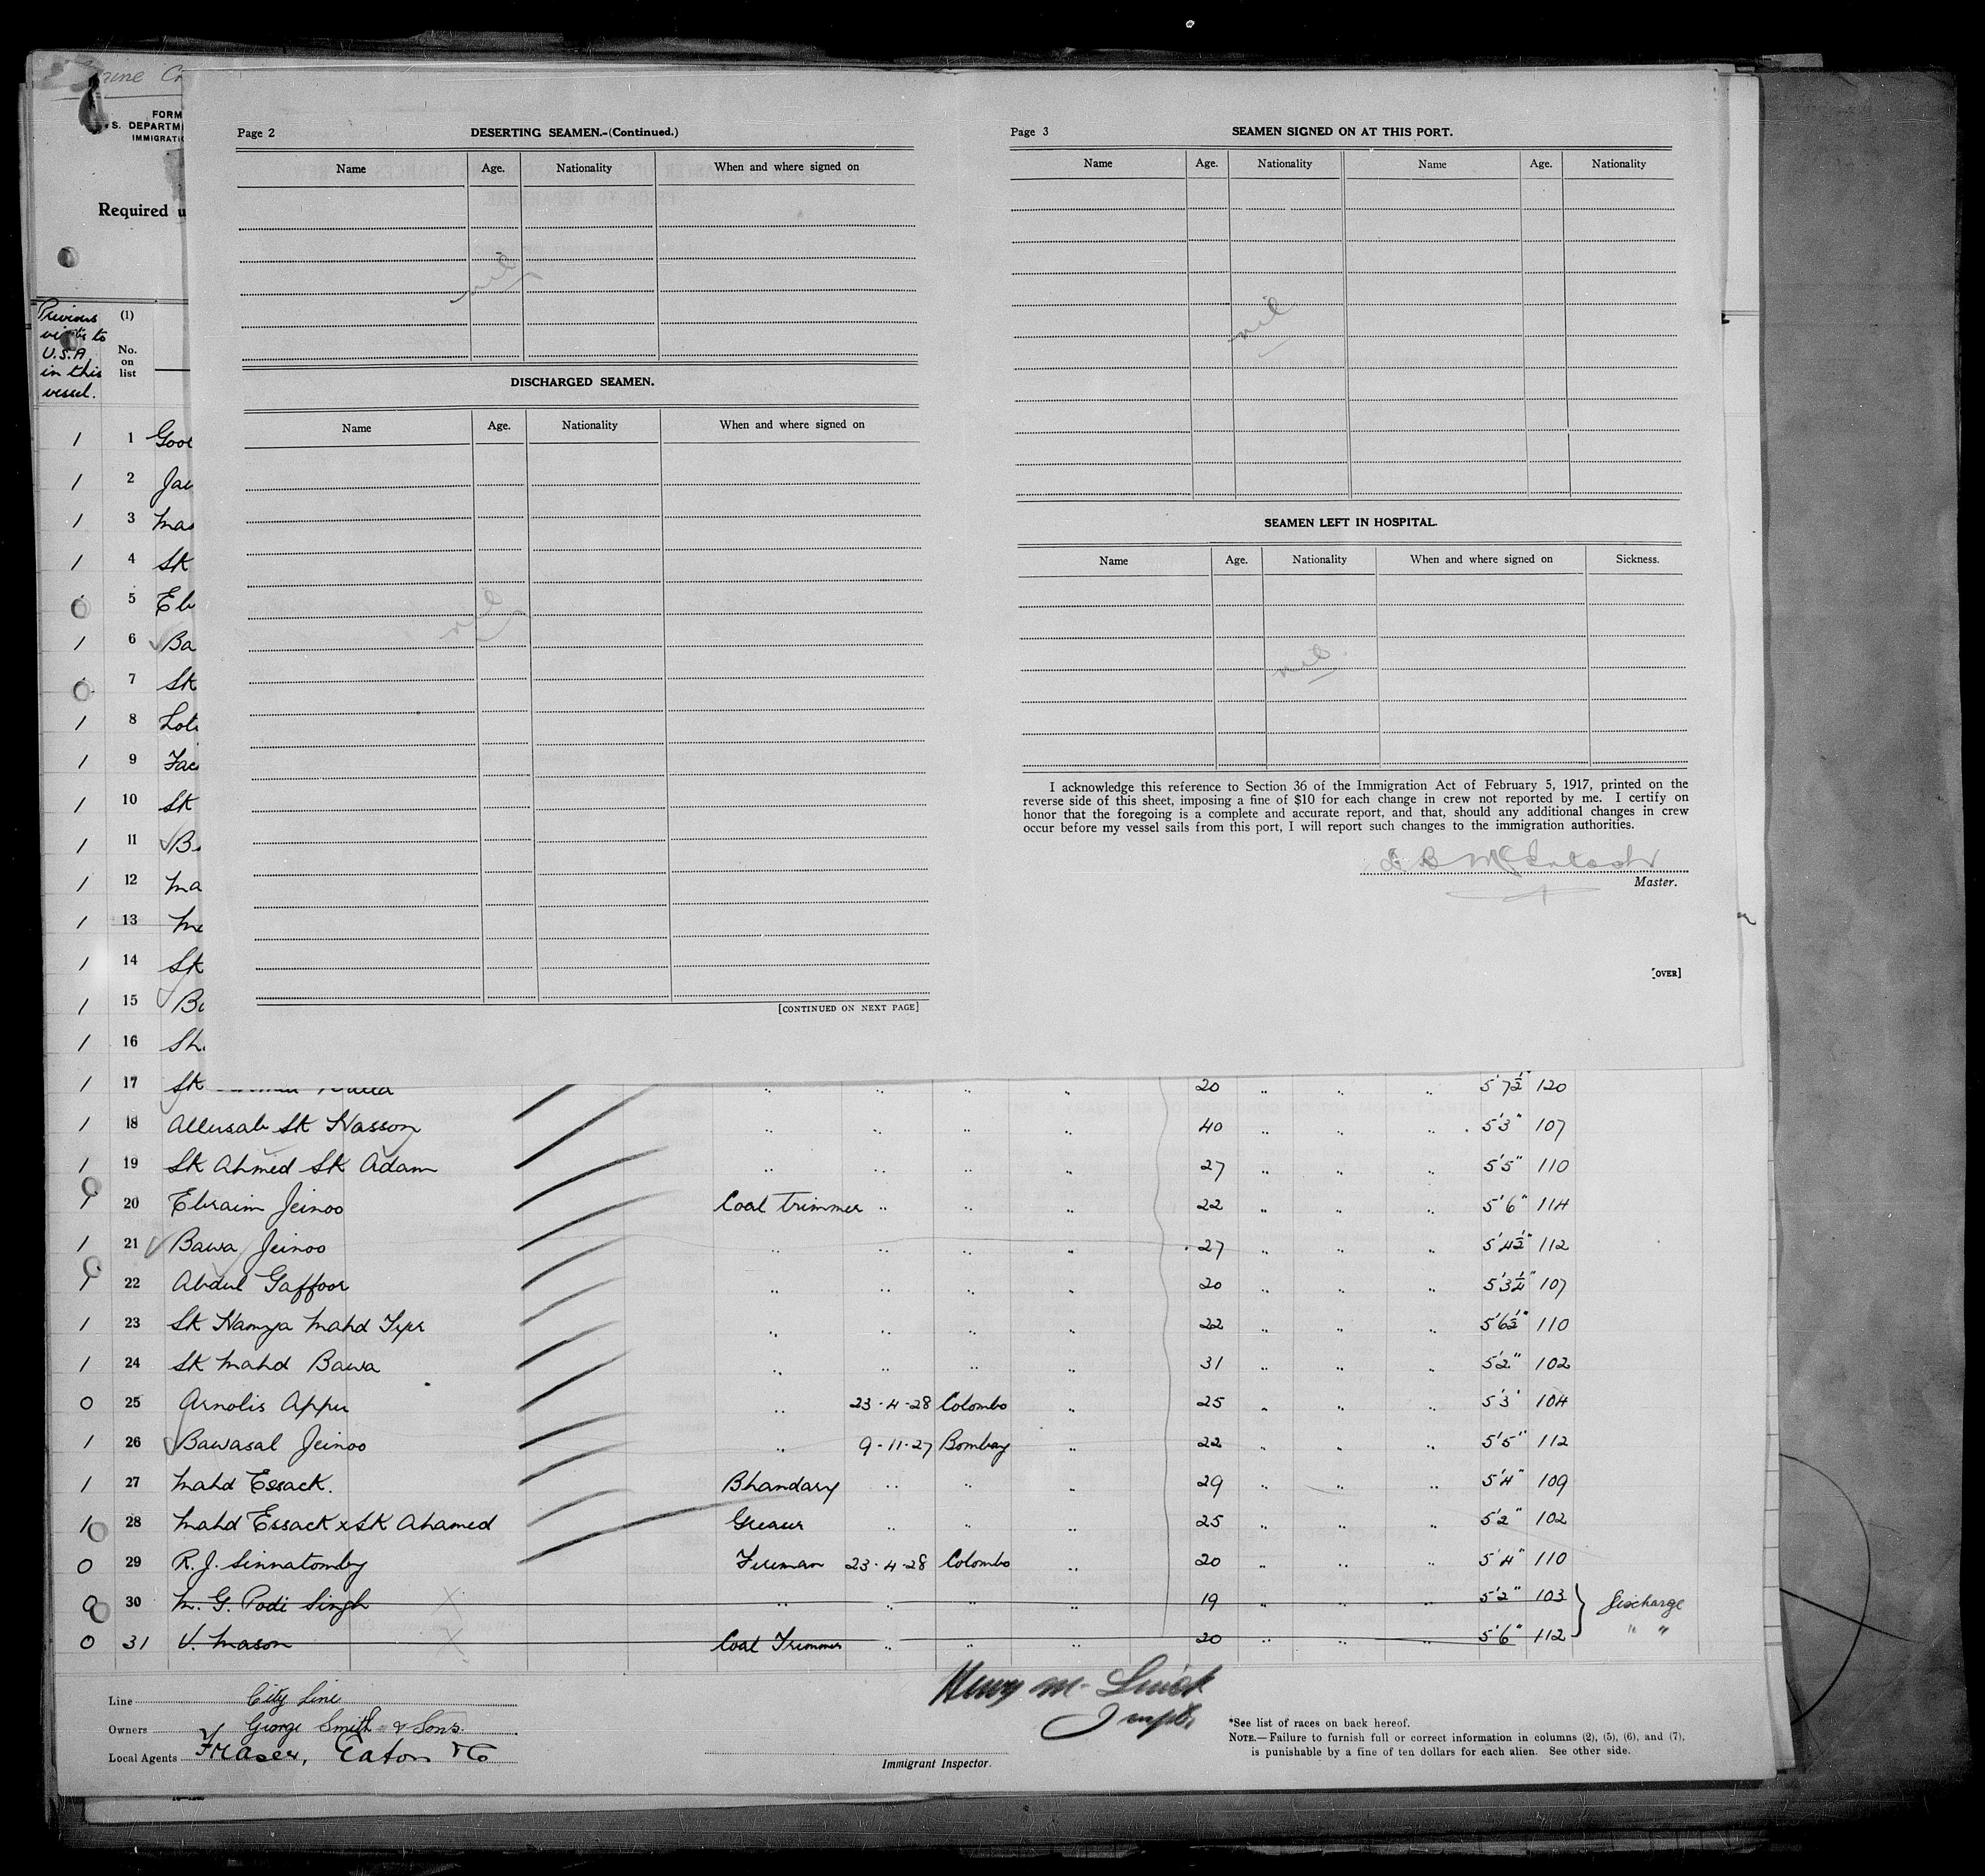 FORM
S. DEPARTM
IMMIGRATIO
Required u
Previous
visits to
U.S.A.
in this
vessel.
(1)
No.
on
list
Page 2 DESERTING SEAMEN.-(Continued.)
Name Age. Nationality When and where signed on
nil
DISCHARGED SEAMEN.
Name Age. Nationality When and where signed on
nil
[CONTINUED ON NEXT PAGE]
Page 3 SEAMEN SIGNED ON AT THIS PORT.
Name Age. Nationality Name Age. Nationality
nil
SEAMEN LEFT IN HOSPITAL.
Name Age. Nationality When and where signed on Sickness.
nil
I acknowledge this reference to Section 36 of the Immigration Act of February 5, 1917, printed on the
reverse side of this sheet, imposing a fine of $10 for each change in crew not reported by me. I certify on
honor that the foregoing is a complete and accurate report, and that, should any additional changes in crew
occur before my vessel sails from this port, I will report such changes to the immigration authorities.
McIntosh
Master.
[OVER]
1 1 Goor
1 2 Jai
1 3 Mas
1 4 Sk
0 5 Eb
1 6 Ba
0 7 Sk
1 8 Lot
1 9 Fac
1 10 Sk
1 11 B
1 12 Ma
1 13 Me
1 14 Sk
1 15 Ba
1 16 Sh
1 17 Sk " " " " 20 " " " 5'7½" 120
1 18 Allusab Sk Hasson " " " " 40 " " " 5'3" 107
1 19 Sk Ahmed Sk Adam " " " " 27 " " " 5'5" 110
1 20 Ebraim Jeinoo Coal Trimmer " " " 22 " " " 5'6" 114
1 21 Bawa Jeinoo " " " " 27 " " " 5'4½" 112
1 22 Abdul Gaffoor " " " " 20 " " " 5'3¼" 107
1 23 Sk Hamya Mahd " " " " 22 " " " 5'6½" 110
1 24 Sk Mahd Bawa " " " " 31 " " " 5'2" 102
0 25 Arnolis Appu " 23-4-28 Colombo " 25 " " " 5'3' 104
1 26 Bawasal Jeinoo " 9-11-27 Bombay " 22 " " " 5'5" 112
1 27 Mahd Essack. Bhandary " " " 29 " " " 5'4" 109
1 28 Mahd Essack x Sk Ahamed Greaser " " " 25 " " " 5'2" 102
0 29 R. J. Sinnatomby Fireman 23-4-28 Colombo " 20 " " " 5'4" 110
0 30 M. G. Podi Singh " " " " 19 " " " 5'2" 103 Discharge
0 31 V. Mason Coal Trimmer " " " 20 " " " 5'6" 112 " "
Line City Line
Owners George Smith & Sons.
Local Agents Fraser, Eaton & Co
Henry M.
Immigrant Inspector.
*See list of races on back hereof.
NOTE.—Failure to furnish full or correct information in columns (2), (5), (6), and (7),
is punishable by a fine of ten dollars for each alien. See other side.